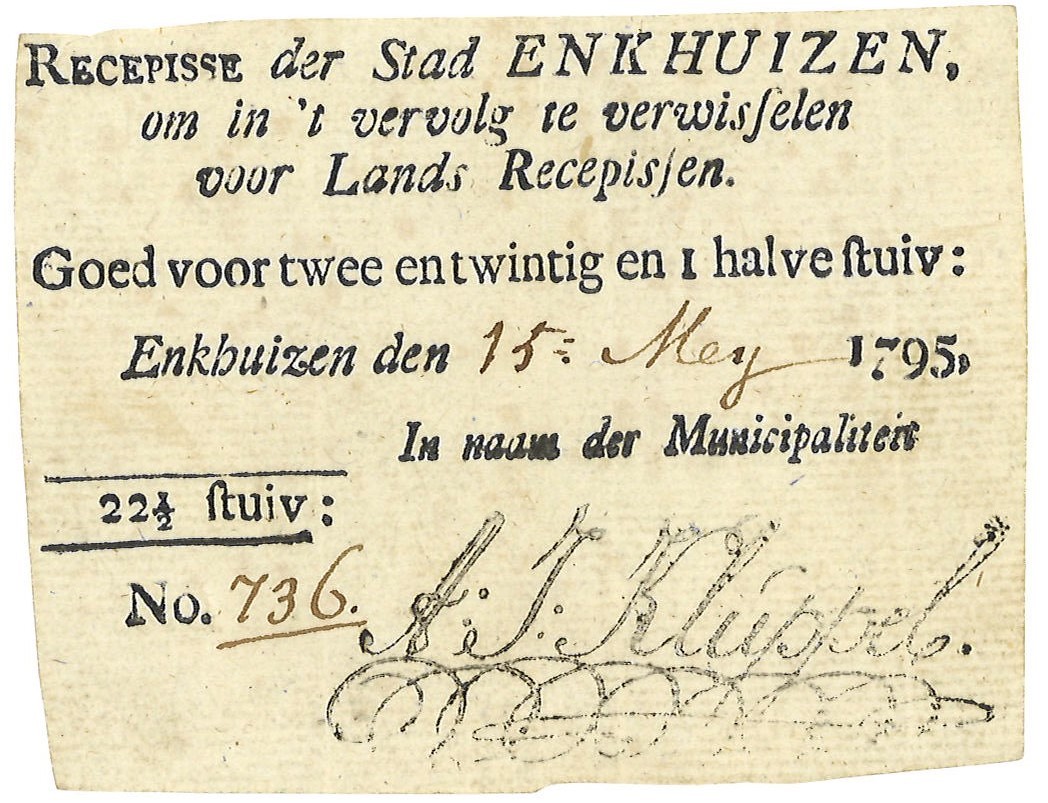 RECEPISSE der Stad ENKHUIZEN,
om in 't vervolg te verwisſelen
voor Lands Recepisſen.
Goed voor twee en twintig en 1 halve ſtuiv:
Enkhuizen den 15: Mey 1795,
In naam der Municipaliteit
22½ ſtuiv:
No. 736.
A: J: Kluppel.